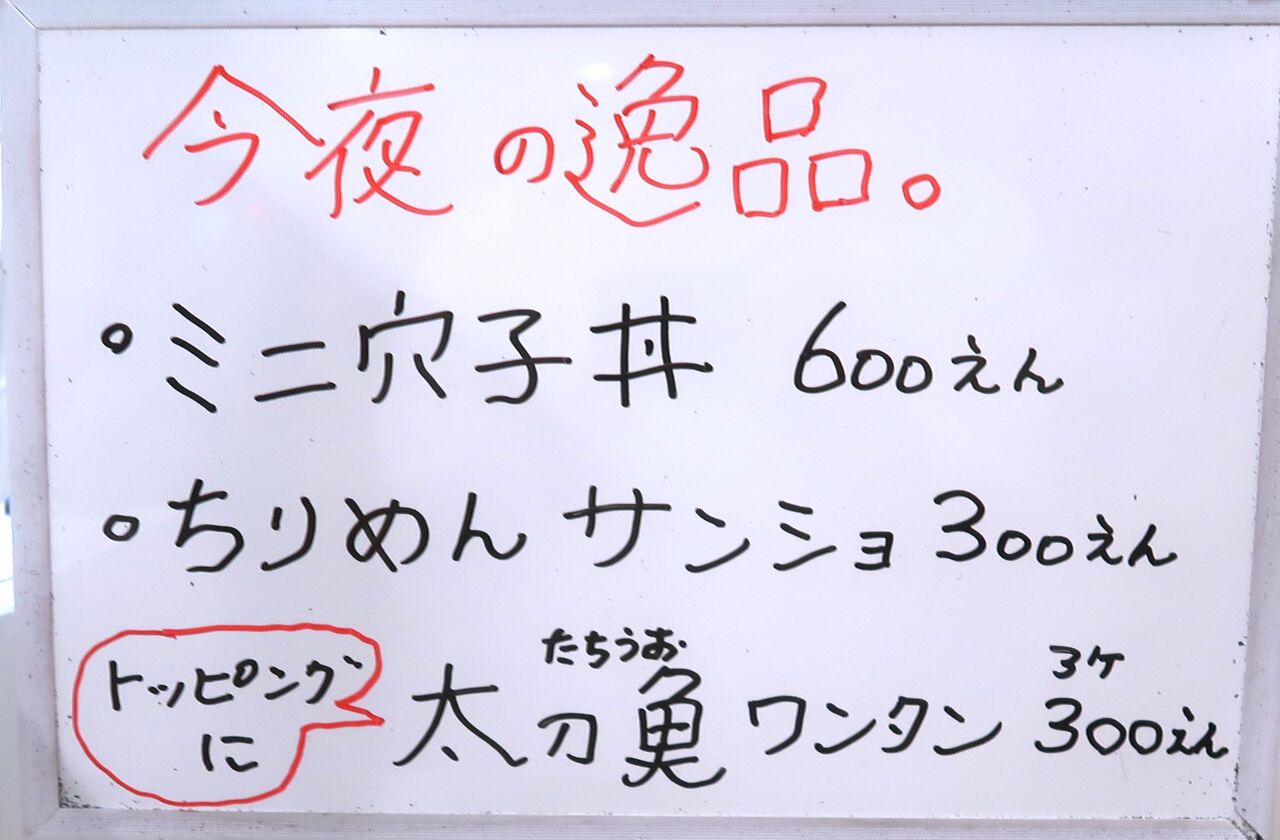 今夜の逸品。
・ミニ穴子丼 600えん
・ちりめんサンショ 300えん
トッピング
に
たちうお
太刀魚ワンタン
3ケ
300えん